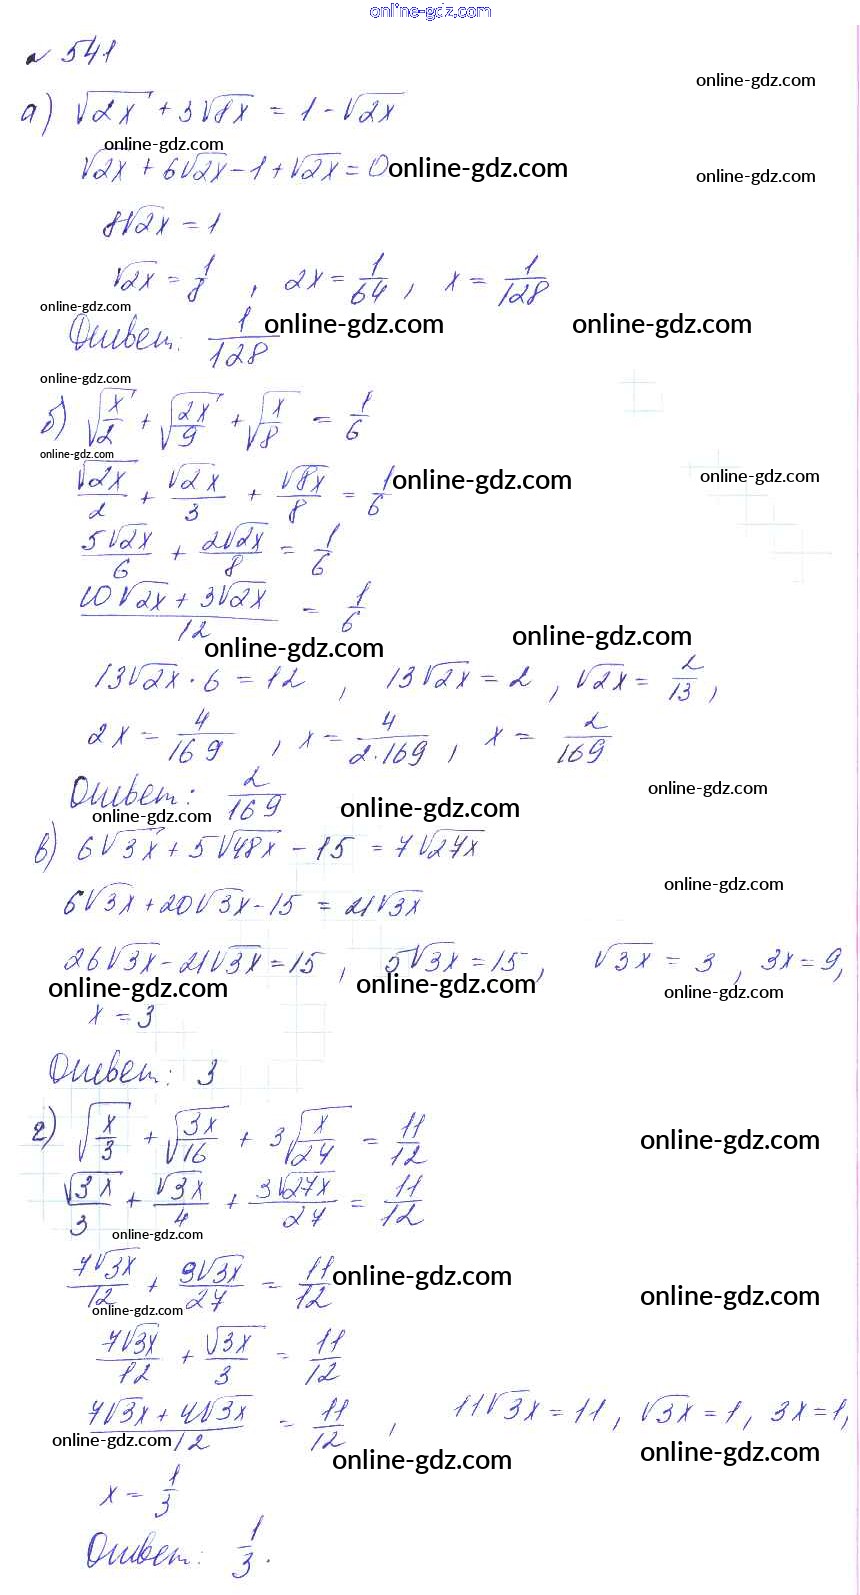 online-gdz.com
№ 541
online-gdz.com
а) √2x + 3√8x = 1 - √2x
online-gdz.com
√2x + 6√2x - 1 + √2x = 0
online-gdz.com
online-gdz.com
8√2x = 1
√2x = 1/8 , 2x = 1/64 , x = 1/128
online-gdz.com
Ответ: 1/128
online-gdz.com
online-gdz.com
online-gdz.com
б) √x/2 + √2x/9 + √x/8 = 1/6
online-gdz.com
√2x/2 + √2x/3 + √8x/8 = 1/6
online-gdz.com
online-gdz.com
5√2x/6 + 2√2x/8 = 1/6
10√2x + 3√2x/12 = 1/6
online-gdz.com
online-gdz.com
13√2x · 6 = 12 , 13√2x = 2 , √2x = 2/13 ,
2x = 4/169 , x = 4/2·169 , x = 2/169
Ответ: 2/169
online-gdz.com
online-gdz.com
online-gdz.com
в) 6√3x + 5√48x - 15 = 7√27x
online-gdz.com
6√3x + 20√3x - 15 = 21√3x
26√3x - 21√3x = 15 , 5√3x = 15 , √3x = 3 , 3x = 9,
online-gdz.com
online-gdz.com
online-gdz.com
x = 3
Ответ: 3
г) √x/3 + √3x/16 + 3√x/27 = 11/12
online-gdz.com
√3x/3 + √3x/4 + 3√27x/27 = 11/12
online-gdz.com
7√3x/12 + 9√3x/27 = 11/12
online-gdz.com
online-gdz.com
online-gdz.com
7√3x/12 + √3x/3 = 11/12
7√3x + 4√3x/12 = 11/12 , 11√3x = 11 , √3x = 1, 3x = 1,
online-gdz.com
online-gdz.com
online-gdz.com
x = 1/3
Ответ: 1/3.